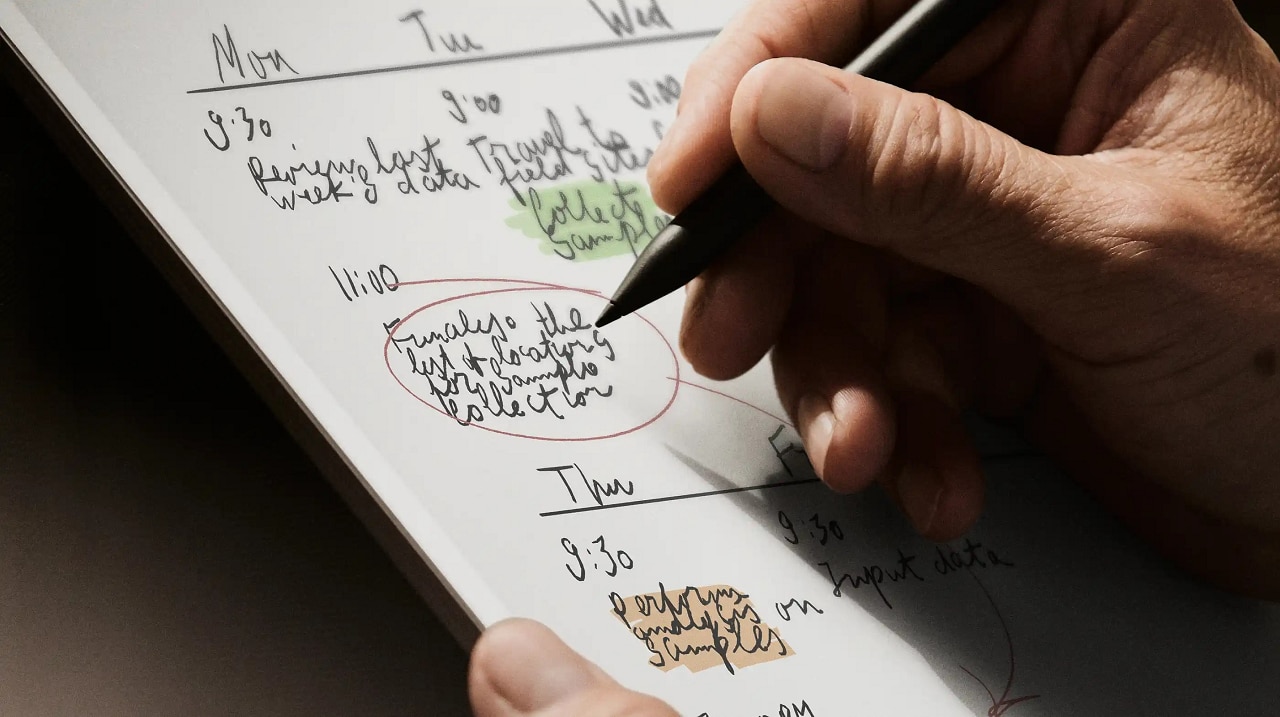 Mon Tue Wed
9:30
Review last
week's data
11:00
Finalise the
list of locations
for sample
collection
9:00
Travel to
field sites
Collect
Samples
9:00
Thu
9:30
Perform
analysis on
samples
9:30
Input data